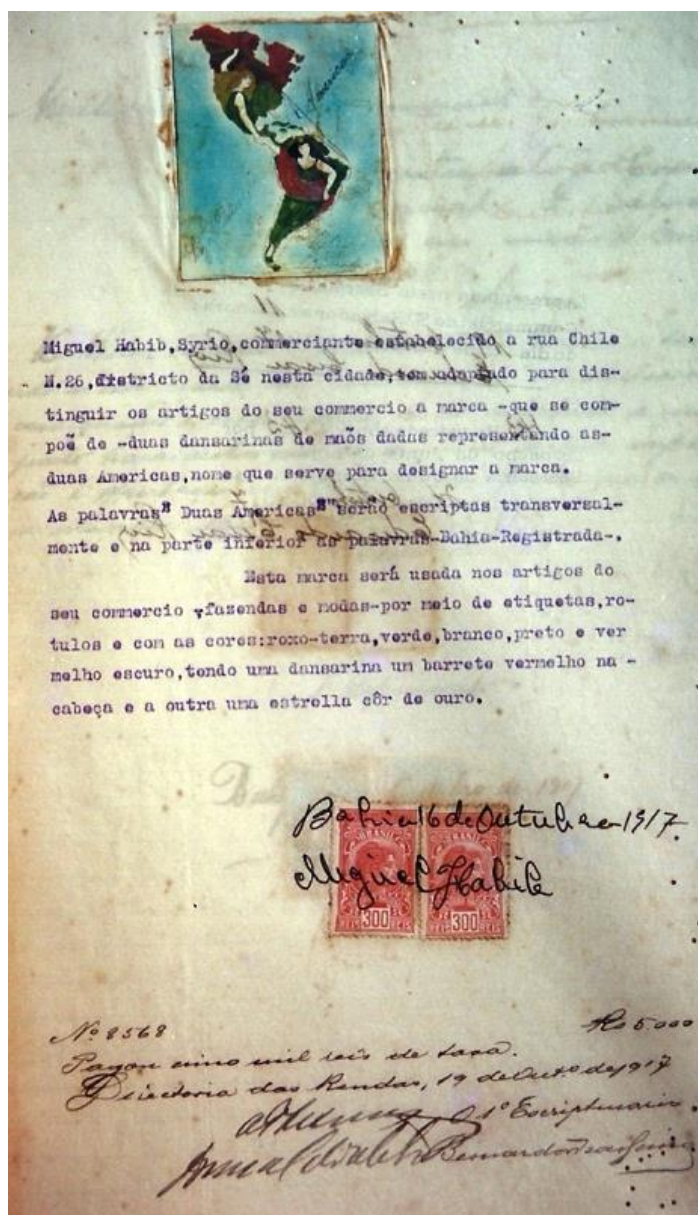 Miguel Habib,Syrio,commerciante estabelecido a rua Chile
N.26,districto da Sé nesta cidade,tem adoptado para dis-
tinguir os artigos do seu commercio a marca -que se com-
poẽ de -duas dansarinas de maõs dadas representando as-
duas Americas,nome que serve para designar a marca.
As palavras" Duas Americas" serão escriptas transversal-
mente e na parte inferior as palavras-Bahia-Registrada-.
Esta marca será usada nos artigos do
seu commercio -fazendas e modas-por meio de etiquetas,ro-
tulos e com as cores:roxo-terra,verde,branco,preto e ver
melho escuro,tendo uma dansarina um barrete vermelho na -
cabeça e a outra uma estrella côr de ouro.
Bahia 16 de Outubro 1917
Miguel Habib
BRASIL BRASIL
300 300
REIS REIS REIS REIS
Nº 8568 Rs 5.000
Pagou cinco mil reis de taxa.
Directoria das Rendas, 19 de Outº de 1917
O 1º Escripturario
Bernardo